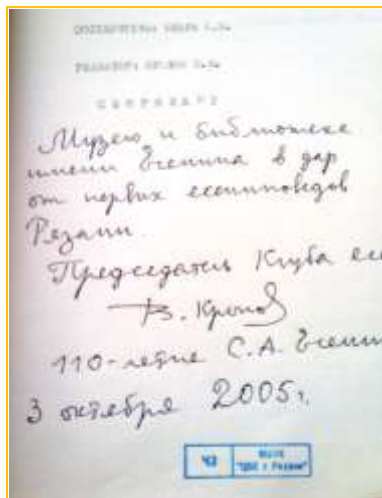 Музею и библиотеке
имени Есенина в дар
от первых есениноведов
Рязани.
Председатель Клуба есе
В.
110-летие С.А. Есени
3 октября 2005 г.
"ЦБС г. Рязани"